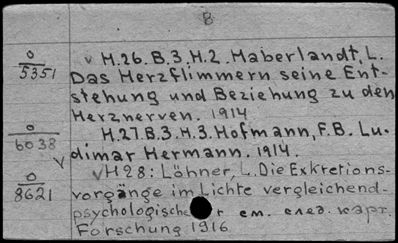 B
O
5351
v H.26.B.3.H.2.Haberlandt, L.
Das Herzflimmern seine Ent-
stehung und Beziehung zu den
Herznerven. 1914
O
6038
H.27.B.3.H.3.Hofmann, F.B. Lu-
dimar Hermann. 1914.
O
8621
v H 28: Löhner, L. Die Exkretions-
vorgänge im Lichte vergleichend-
psychologische r см. след. карт.
Forschung 1916